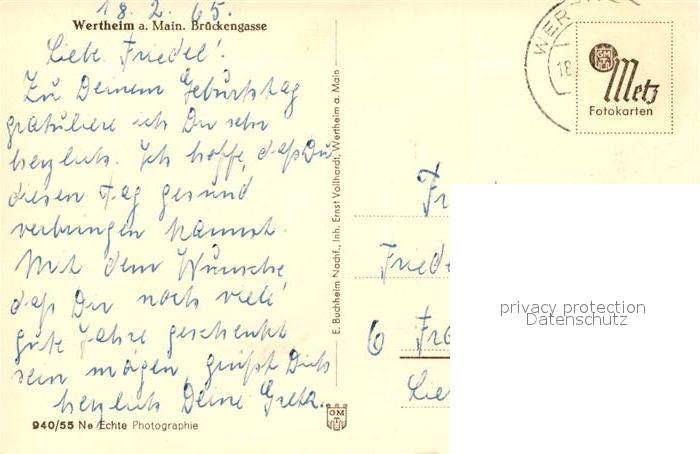 18.2.65.
Wertheim a. Main. Brückengasse
Liebe Friedel!
Zu Deinem Geburtstag
gratuliere ich Dir sehr
herzlich. Ich hoffe, daß Du
diesen Tag gesund
verbringen kannst.
Mit dem Wunsche
daß Dir noch viele
gute Jahre geschenkt
sein mögen, grüßt Dich
herzlich Deine Gretl.
940/55 Ne Echte Photographie
E. Buchheim Nachf., Inh. Ernst Vollhardt, Wertheim a. Main
GM
WER
18
GM
Metz
Fotokarten
Fr
Friede
6 Fra
Lie
privacy protection
Datenschutz